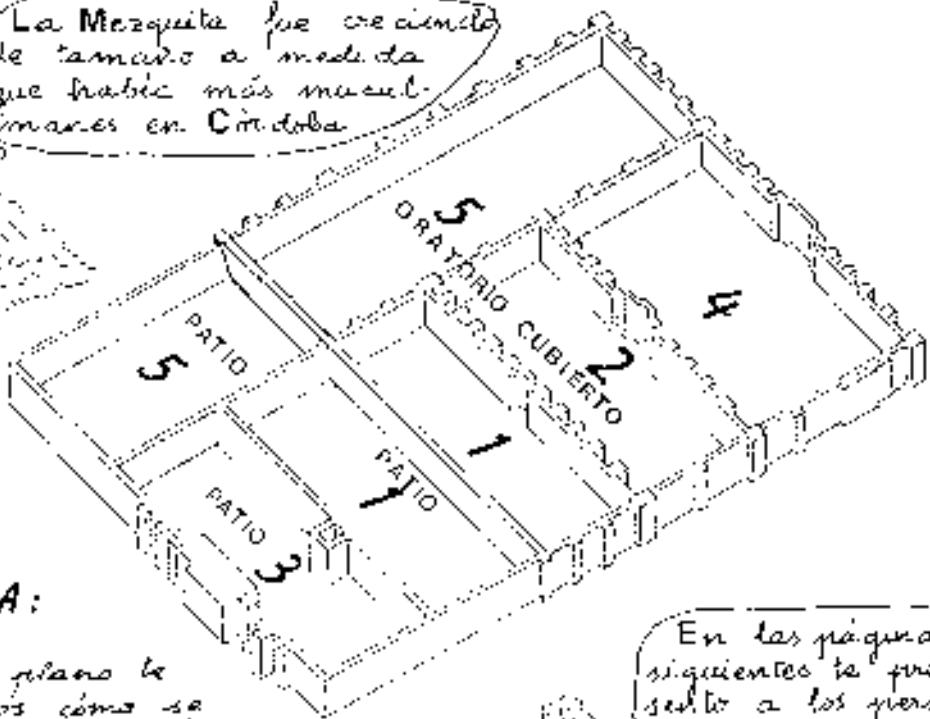 La Mezquita fue creciendo
de tamaño a medida
que había más musul-
manes en Córdoba
5
ORATORIO CUBIERTO
4
PATIO
5
2
1
PATIO
1
PATIO
3
A:
plano te
cómo se
En las página
siguientes te pre
sento a los pers